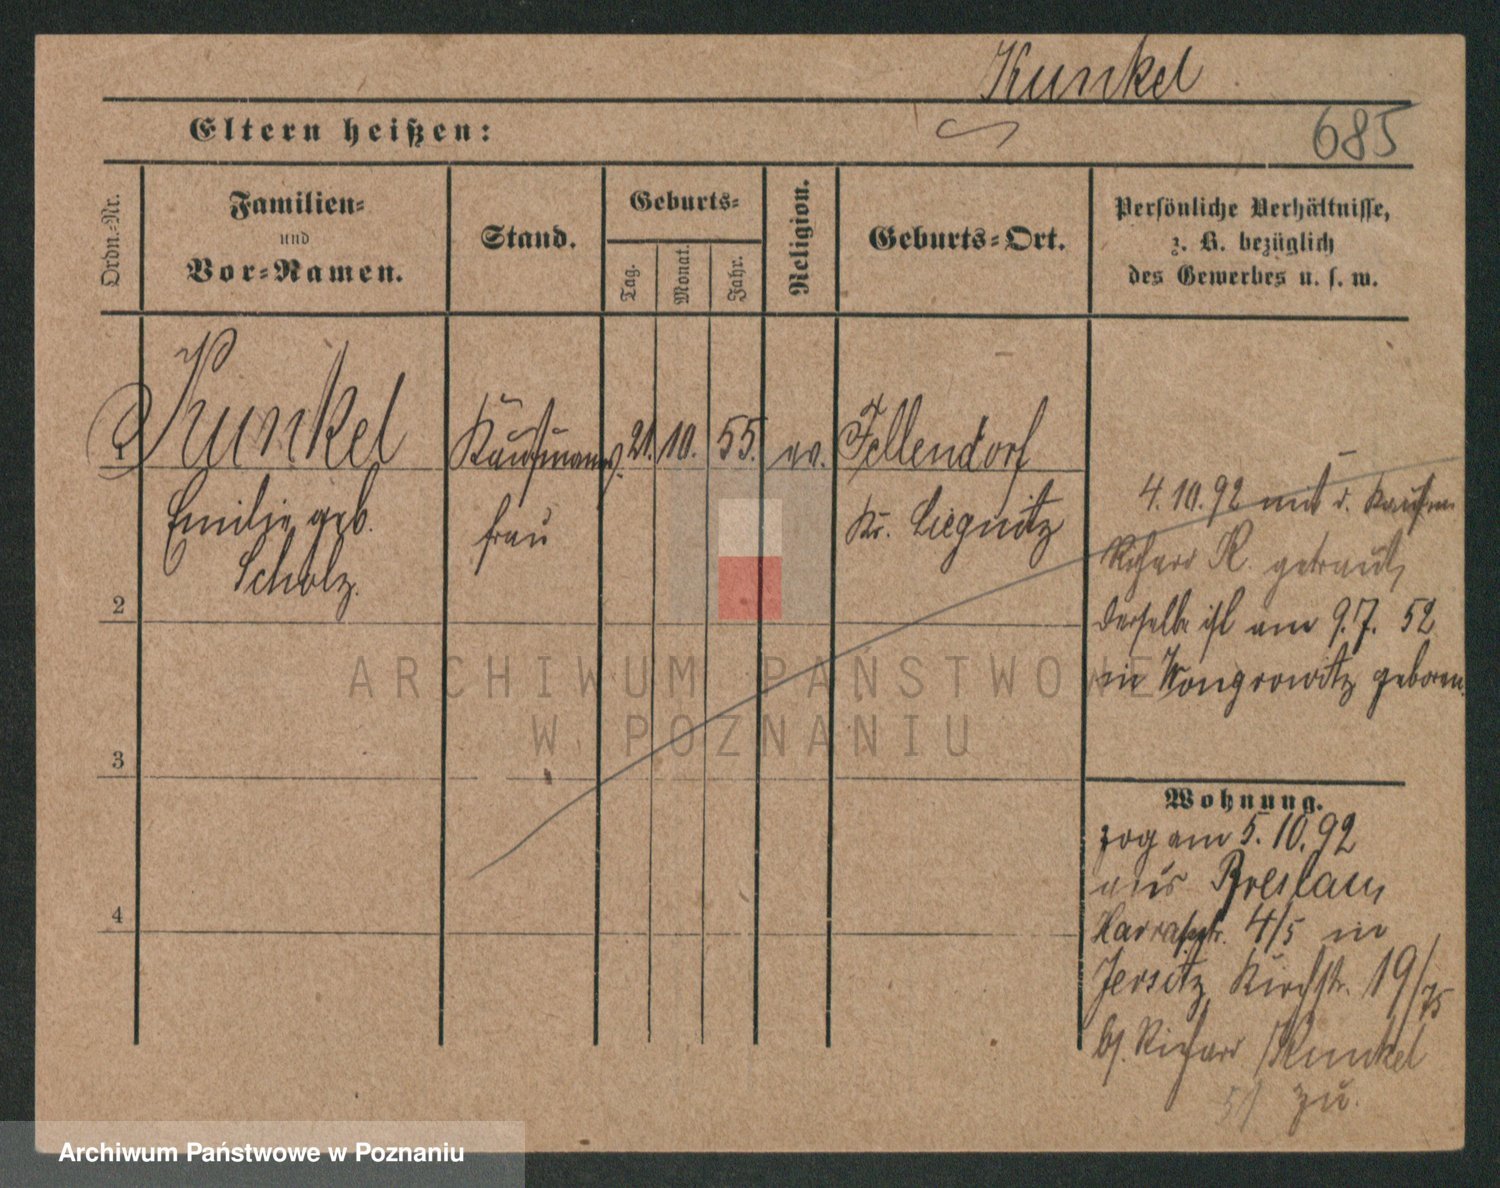 Kunkel
Eltern heißen:
685
Ordn.-Nr.
Familien-
und
Vor-Namen.
Stand.
Geburts-
Tag.
Monat.
Jahr.
Religion.
Geburts-Ort.
Persönliche Verhältnisse,
z. B. bezüglich
des Gewerbes u. s. w.
1 Kunkel Kaufmanns 21. 10. 55. ev. Fellendorf
Emilie geb. frau Kr. Liegnitz
Scholz.
4.10.92 mit d. Kaufm.
Richard K. getraut,
derselbe ist am 9.7. 52
in Wongrowitz geboren.
2
3
4
Wohnung.
zog am 5.10.92
aus Breslau,
Harrasstr. 4/5 in
Jersitz, Kirchstr. 19/75
bj. Richard Kunkel
zu.
ARCHIWUM PAŃSTWOWE
W POZNANIU
Archiwum Państwowe w Poznaniu